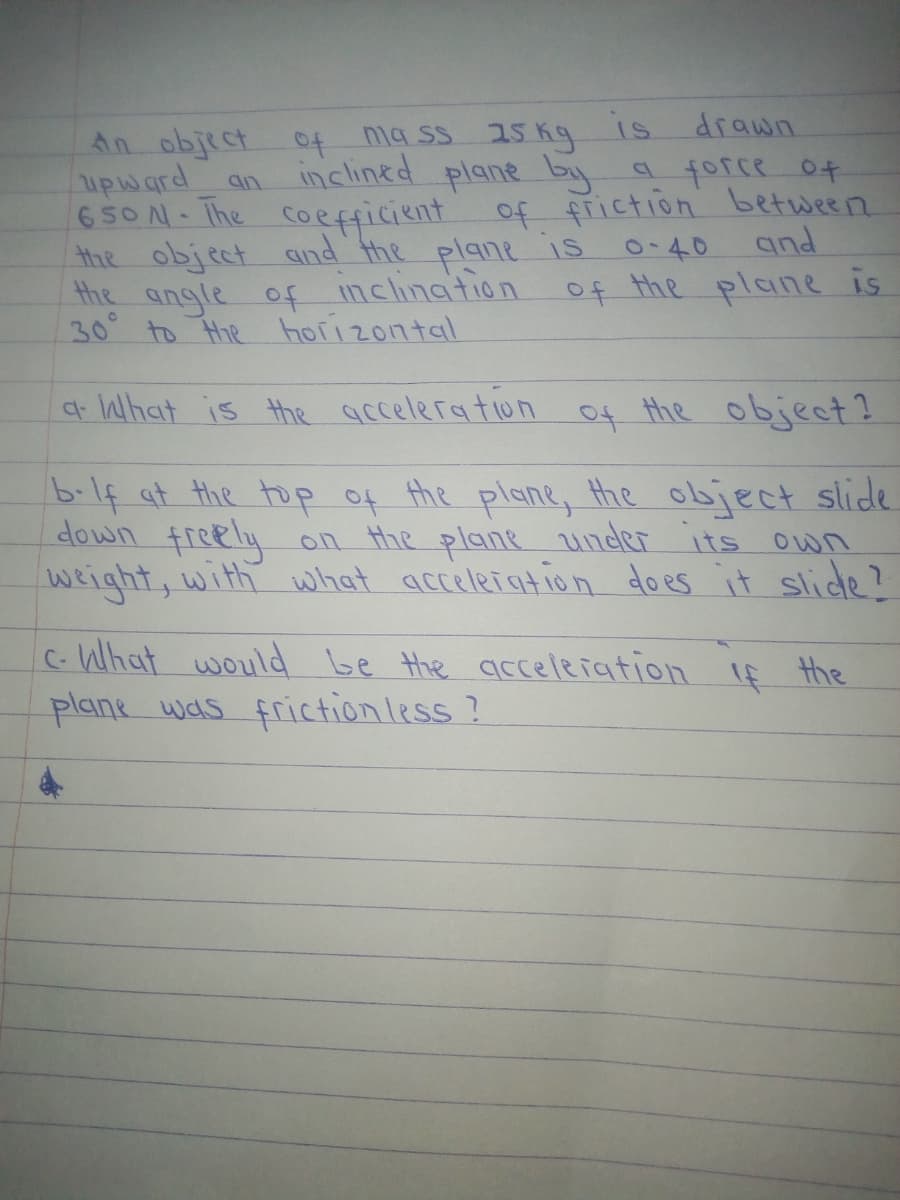 An object of mass 25 Kg is drawn
upward an inclined plane by a force of
650 N. The coefficient of friction between
the object and the plane is 0.40 and
the angle of inclination of the plane is
30° to the horizontal
a. What is the acceleration of the object?
b. If at the top of the plane, the object slide
down freely on the plane under its own
weight, with what acceleration does it slide?
c. What would be the acceleration if the
plane was frictionless?